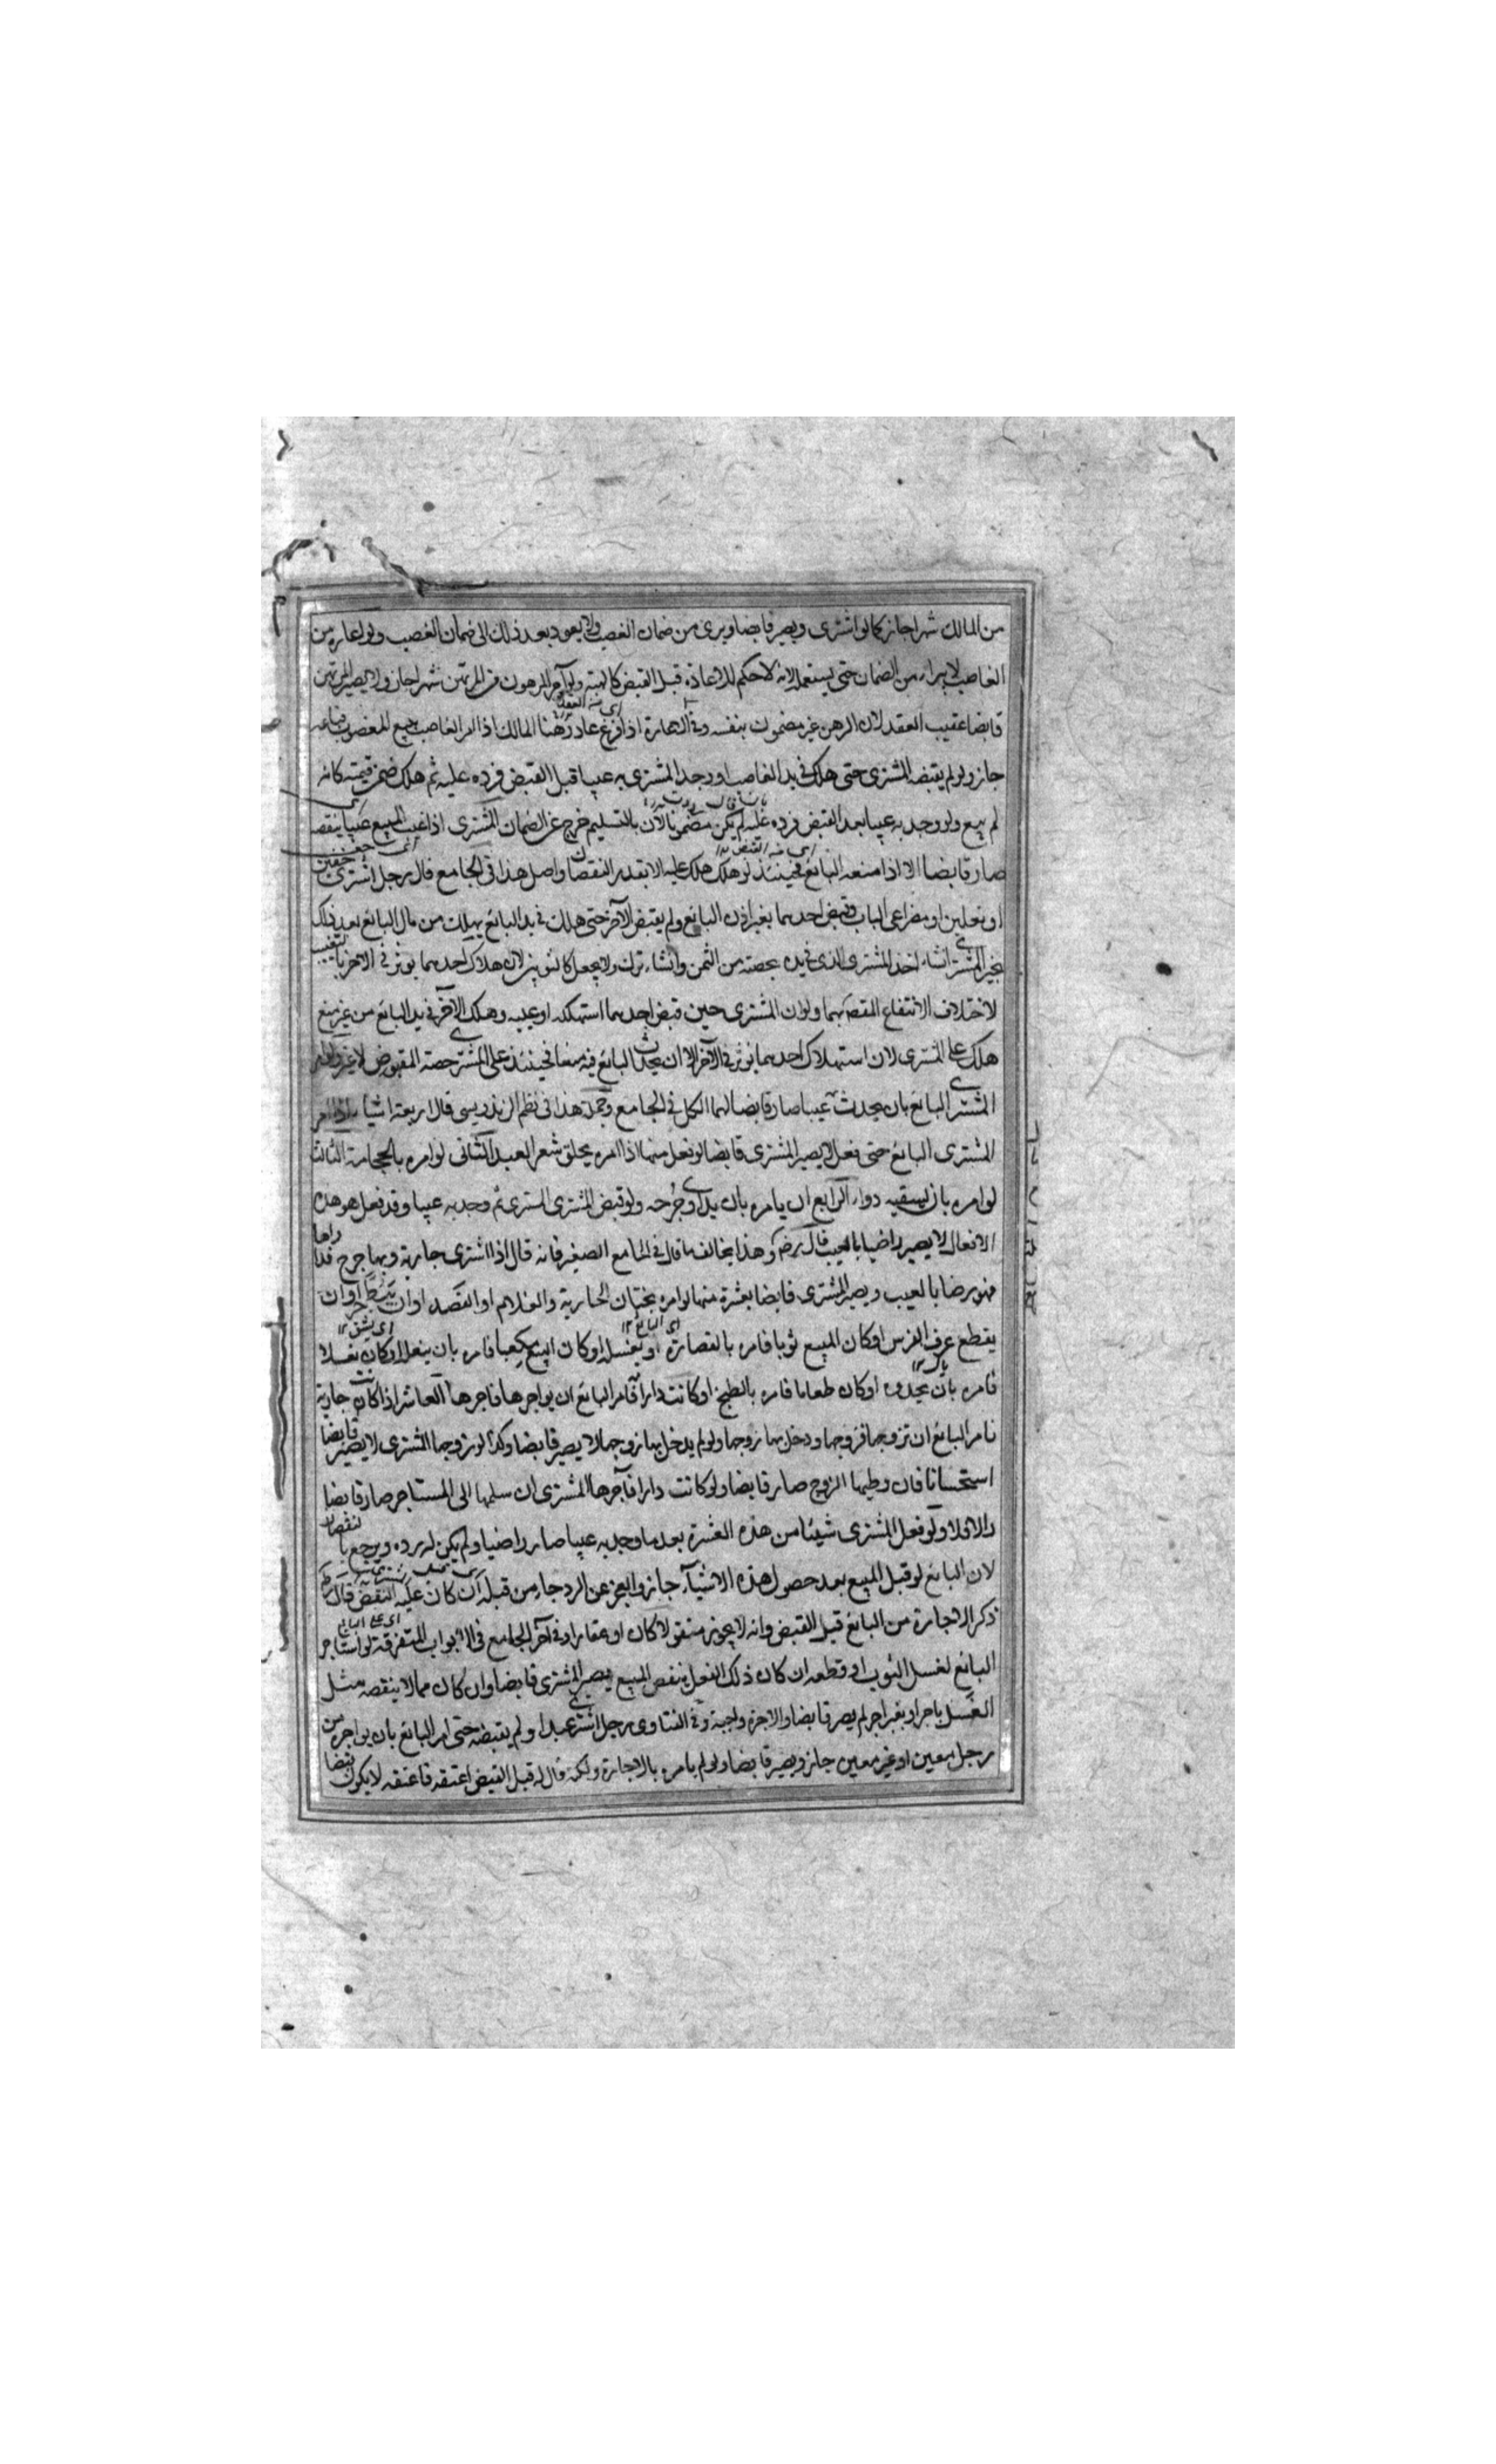 من المالك شهرا جاز كما لو اشترى ويصير قابضا ويبرى من ضمان الغصب ولا يعود بعد ذلك الى ضمان الغصب ولو اعاره من
الغاصب لا يبراء من الضمان حتى يستعمله لانه لا حكم للاعارة قبل القبض كالهبة ولو آجر المرهون من المرتهن شهرا جاز ولا يصير المرتهن
قابضا عقيب العقد لان الرهن غير مضمون بنفسه وفى اذا فرغ عاد رهنا المالك اذا امر الغاصب ببيع المغصوب فباعه
جاز ولو لم يقبضه المشترى حتى هلك فى يد الغاصب او وجد المشترى به عيبا قبل القبض فرده عليه ثم هلك ضمن قيمته كانه
لم يبع ولو وجد به عيبا بعد القبض فرده عليه لم يكن مضمونا لان بالتسليم خرج عن الضمان المشترى اذا عيب المبيع عيبا ينقصه
صار قابضا الا اذا منعه البائع فحينئذ لو هلك هلك عليه الا بقدر النقصان واصل هذا فى الجامع قال رجل اشترى خفين
او نعلين او مصراعى الباب وقبض احدهما بغير اذن البائع ولم يقبض الآخر حتى هلك فى يد البائع يهلك من مال البائع بعد ذلك
يخير المشترى ان شاء اخذ المشترى الذى فى يده بحصته من الثمن وان شاء ترك ولا يجعل كالثوبين لان هلاك احدهما يوثر فى الآخر بالتعييب
لاختلاف الانتفاع المقصود بهما ولو ان المشترى حين قبض احدهما استهلكه او عيبه وهلك الآخر فى يد البائع من غير منع
هلك على المشترى لان استهلاك احدهما يوثر فى الآخر الا ان يحدث البائع فيه منعا فحينئذ على المشترى حصة المقبوض لا غير ولو امر
المشترى البائع بان يحدث عيبا صار قابضا لهما الكل فى الجامع وجملة هذا فى نظم الزندويسى قال اربعة اشياء اذا امر
المشترى البائع حتى فعل لا يصير المشترى قابضا لو فعل منها اذا امره بحلق شعر العبد الثانى لو امره بالحجامة الثالث
لو امره بان يسقيه دواء الرابع ان يامره بان يداوى جرحه ولو قبض المشترى المشترى ثم وجد به عيبا وقد فعل هو هذه
الافعال لا يصير راضيا بالعيب قال رضه وهذا يخالف ما قال فى الجامع الصغير فانه قال اذا اشترى جارية وبها جرح فداواها
فهو رضا بالعيب ويصير المشترى قابضا بعشرة منها لو امره بختان الجارية والغلام او الفصد او ان يبط جرحا او ان
يقطع عرف الفرس او كان المبيع ثوبا فامره بالقصارة او بغسله او كان المبيع مكعبا فامره بان ينعله او كان نعلا
فامره بان يحذوه او كان طعاما فامره بالطبخ او كانت دارا فامر البائع ان يواجرها فاجرها العاشر اذا كانت جارية
فامر البائع ان تزوجها فزوجها ودخل بها زوجها ولو لم يدخل بها زوجها لا يصير قابضا وكذا لو زوجها المشترى لا يصير قابضا
استحسانا فان وطيها الزوج صار قابضا ولو كانت دارا فآجرها المشترى ان سلمها الى المستاجر صار قابضا
والا فلا ولو فعل المشترى شيئا من هذه العشرة بعد ما وجد به عيبا صار راضيا ولم يكن له رده ويرجع بالنقصان
لان البائع لو قبل المبيع بعد حصول هذه الاشيآء جاز والعجز عن الرد جاء من قبله ان كان عليه النقض قال رضه
ذكر الاجارة من البائع قبل القبض وانه لا يجوز منقولا كان او عقارا وفى آخر الجامع فى الابواب المتفرقة لو استاجر
البائع لغسل الثوب او قطعه ان كان ذلك الفعل ينقص المبيع يصير المشترى قابضا وان كان مما لا ينقصه مثل
الغسل باجر او بغير اجر لم يصر قابضا والاجرة واجبة وفى الفتاوى رجل اشترى عبدا ولم يقبضه حتى امر البائع بان يواجره من
رجل معين او غير معين جاز ويصير قابضا ولو لم يامره بالاجارة ولكنه قال له قبل القبض اعتقه فاعتقه لا يكون قبضا